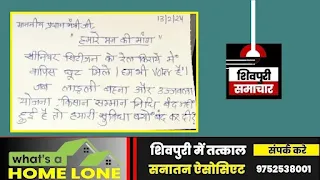 13/2/24
माननीय प्रधान मंत्री जी,
"हमारे मन की मांग"
सीनियर सिटीजन को रेल किराये में
वापिस छूट मिले। हम भी Voter हैं।
जब लाड़ली बहना और उज्जवला
योजना, किसान सम्मान निधि बंद नहीं
हुई है तो हमारी सुविधा क्यों बंद कर दी?
शिवपुरी
समाचार
what's a
HOME LONE
शिवपुरी में तत्काल
सनातन ऐसोसिएट
संपर्क करे
9752538001